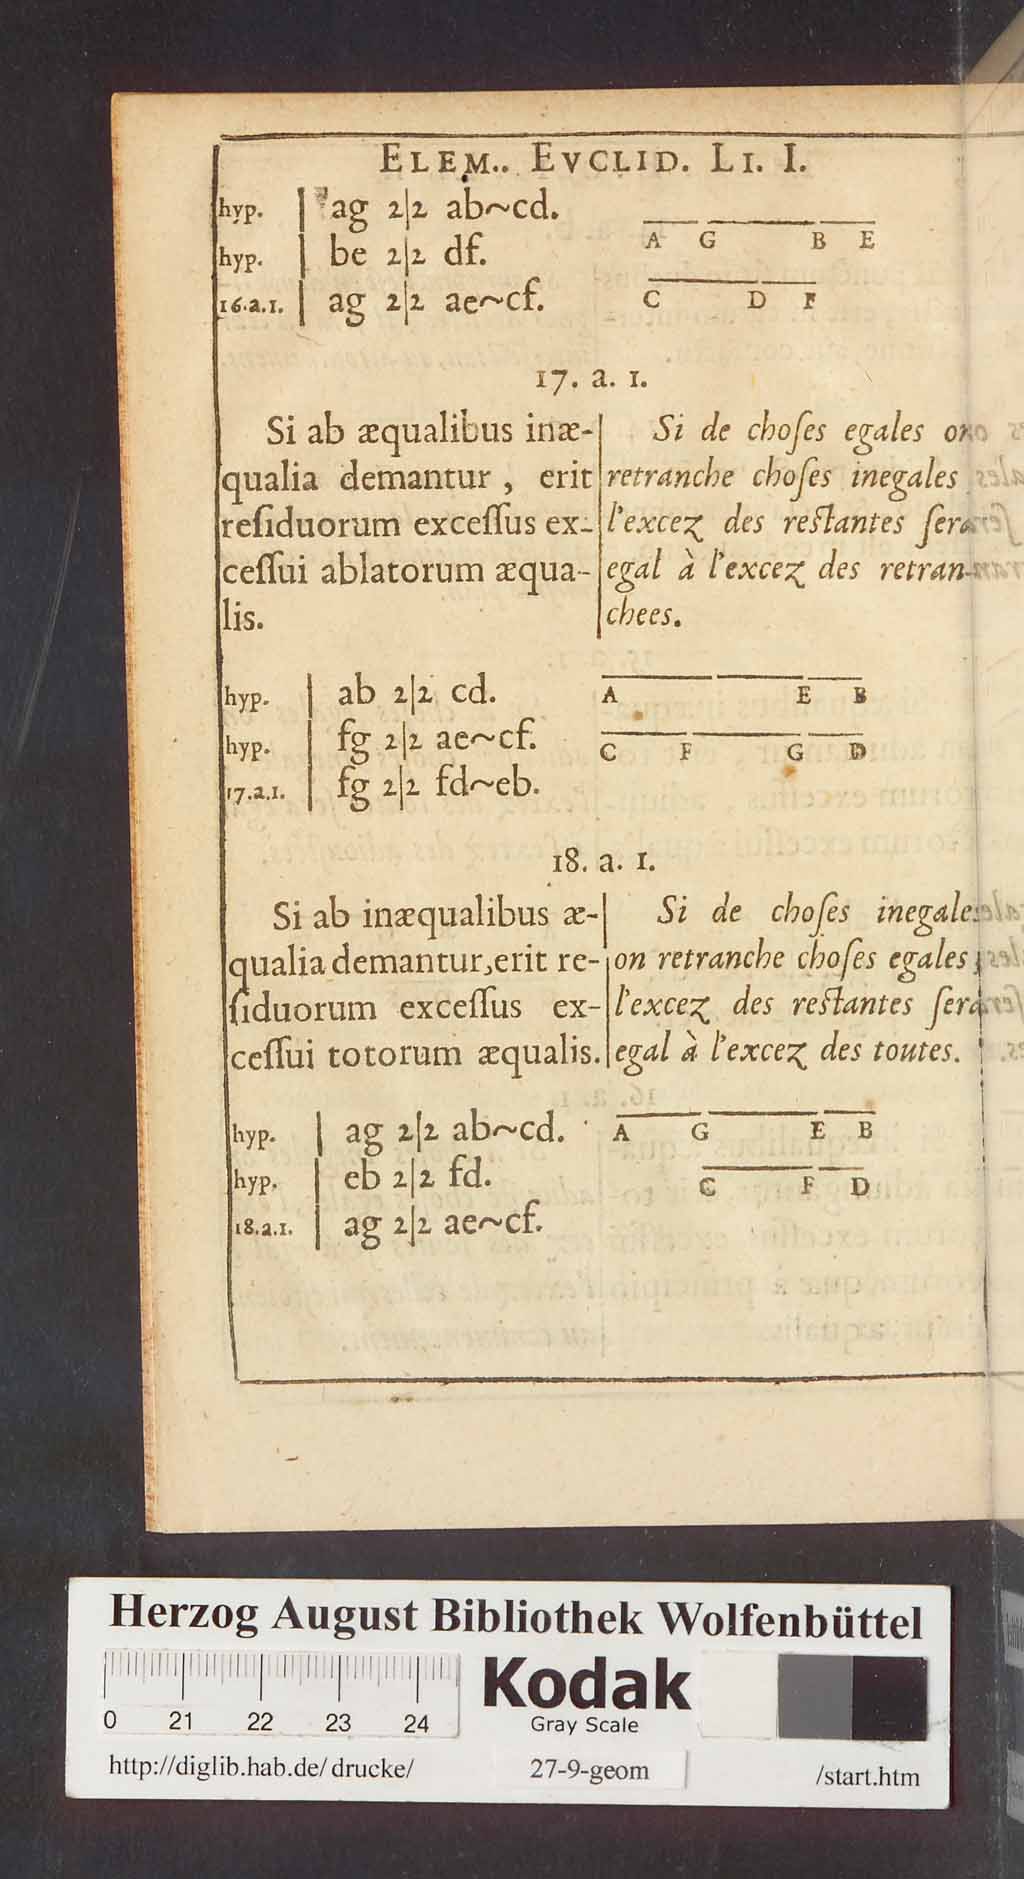 ELEM.. EVCLID. LI. I.
hyp. | ag 2|2 ab~cd.
hyp. | be 2|2 df.
16.a.1. | ag 2|2 ae~cf.
A G B E
C D F
17. a. 1.
Si ab æqualibus inæ-
qualia demantur, erit
reſiduorum exceſſus ex-
ceſſui ablatorum æqua-
lis.
Si de choſes egales on
retranche choſes inegales
l'excez des reſtantes ſera
egal à l'excez des retran-
chees.
hyp. | ab 2|2 cd.
hyp. | fg 2|2 ae~cf.
17.a.1. | fg 2|2 fd~eb.
A E B
C F G D
18. a. 1.
Si ab inæqualibus æ-
qualia demantur, erit re-
ſiduorum exceſſus ex-
ceſſui totorum æqualis.
Si de choſes inegales
on retranche choſes egales,
l'excez des reſtantes ſera
egal à l'excez des toutes.
hyp. | ag 2|2 ab~cd.
hyp. | eb 2|2 fd.
18.a.1. | ag 2|2 ae~cf.
A G E B
C F D
Herzog August Bibliothek Wolfenbüttel
0 21 22 23 24
Kodak
Gray Scale
http://diglib.hab.de/drucke/ 27-9-geom /start.htm